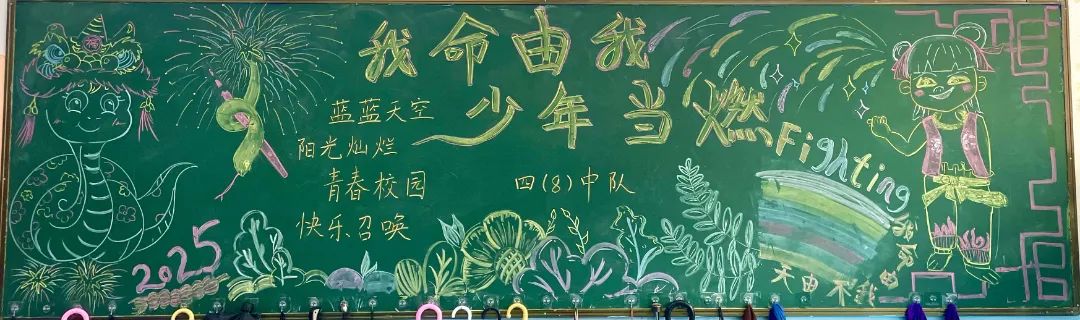 我命由我
少年当燃
蓝蓝天空
阳光灿烂
青春校园
快乐召唤
四(8)中队
Fighting
2025
天由不我
命由我